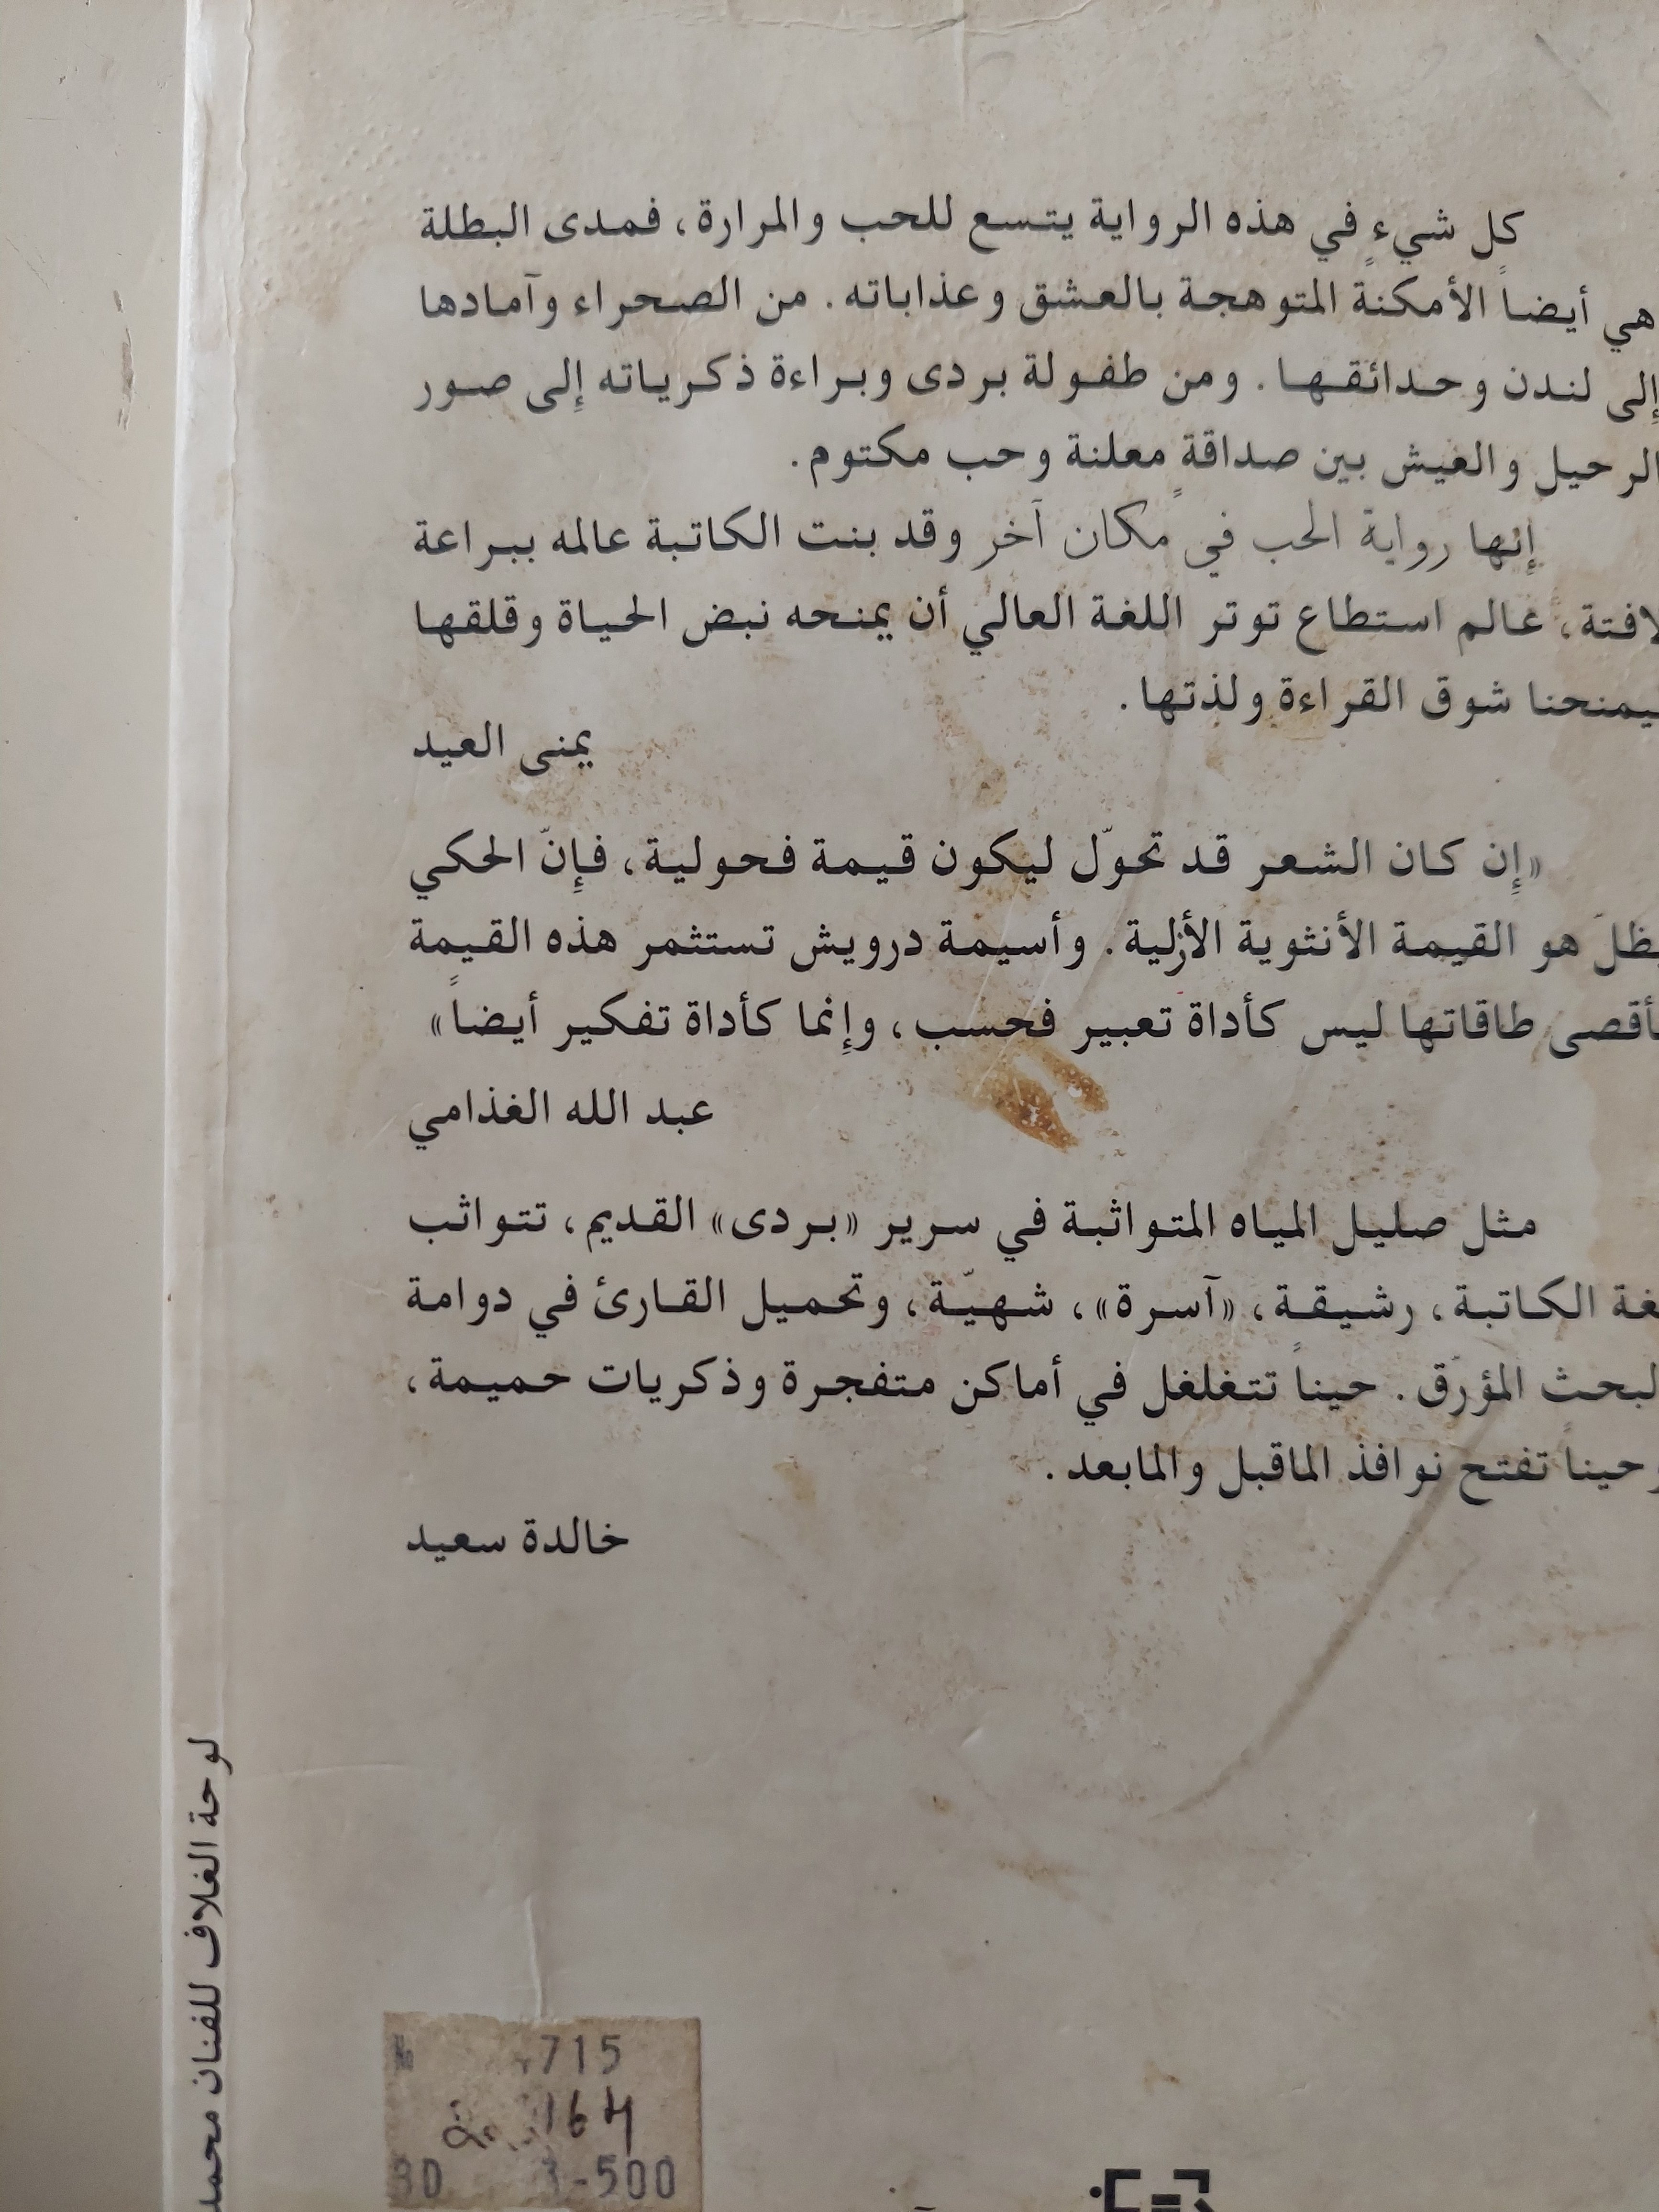 كل شيء في هذه الرواية يتسع للحب والمرارة، فمدى البطلة
هي أيضاً الأمكنة المتوهجة بالعشق وعذاباته. من الصحراء وآمادها
إلى لندن وحدائقها. ومن طفولة بردى وبراءة ذكرياته إلى صور
الرحيل والعيش بين صداقة معلنة وحب مكتوم.
إنها رواية الحب في مكان آخر وقد بنت الكاتبة عالمه ببراعة
لافتة، عالم استطاع توتر اللغة العالي أن يمنحه نبض الحياة وقلقها
ليمنحنا شوق القراءة ولذتها.
يمنى العيد
«إن كان الشعر قد تحوّل ليكون قيمة فحولية، فإنّ الحكي
يظلّ هو القيمة الأنثوية الأزلية. وأسيمة درويش تستثمر هذه القيمة
بأقصى طاقاتها ليس كأداة تعبير فحسب، وإنما كأداة تفكير أيضاً»
عبد الله الغذامي
مثل صليل المياه المتواثبة في سرير «بردى» القديم، تتواثب
لغة الكاتبة، رشيقة، «آسرة»، شهيّة، وتحميل القارئ في دوامة
البحث المؤرّق. حيناً تتغلغل في أماكن متفجرة وذكريات حميمة،
وحيناً تفتح نوافذ الماقبل والمابعد.
خالدة سعيد
لوحة الغلاف للفنان محمد
№ 715
164
BD 3-500